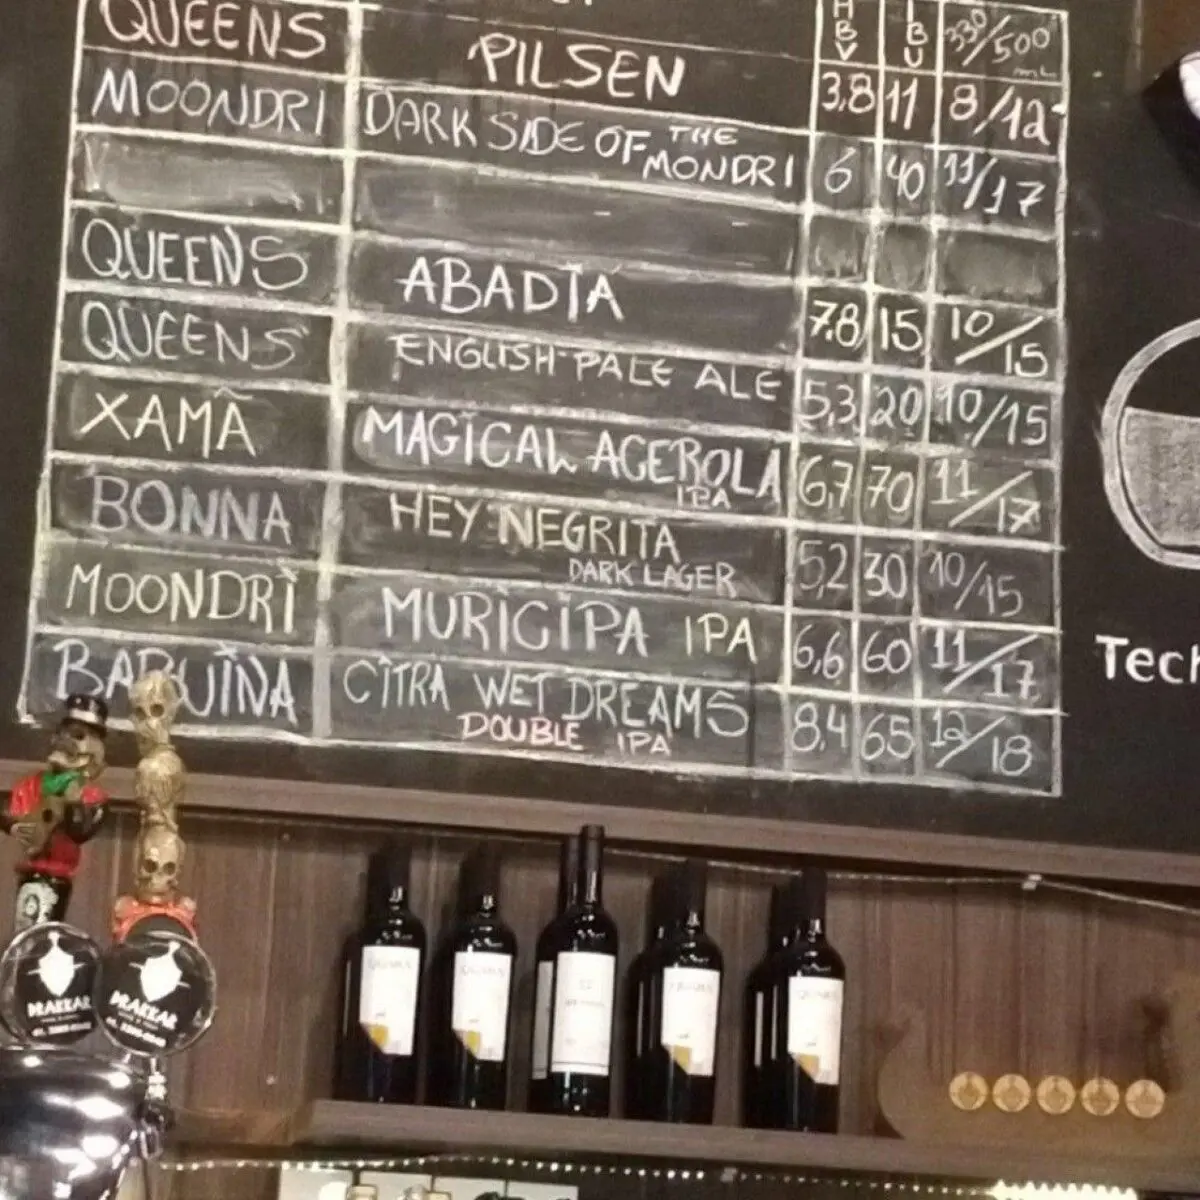 ABV IBU 330/500 mL
QUEENS PILSEN 3,8 11 8/12
MOONDRI DARK SIDE OF THE MONDRI 6 40 11/17
QUEENS ABADIA 7,8 15 10/15
QUEENS ENGLISH PALE ALE 5,3 20 10/15
XAMÃ MAGICAL ACEROLA IPA 6,7 70 11/17
BONNA HEY NEGRITA DARK LAGER 5,2 30 10/15
MOONDRI MURICIPA IPA 6,6 60 11/17
BARUINA CITRA WET DREAMS DOUBLE IPA 8,4 65 12/18
Tech
DRAKKAR
DRAKKAR